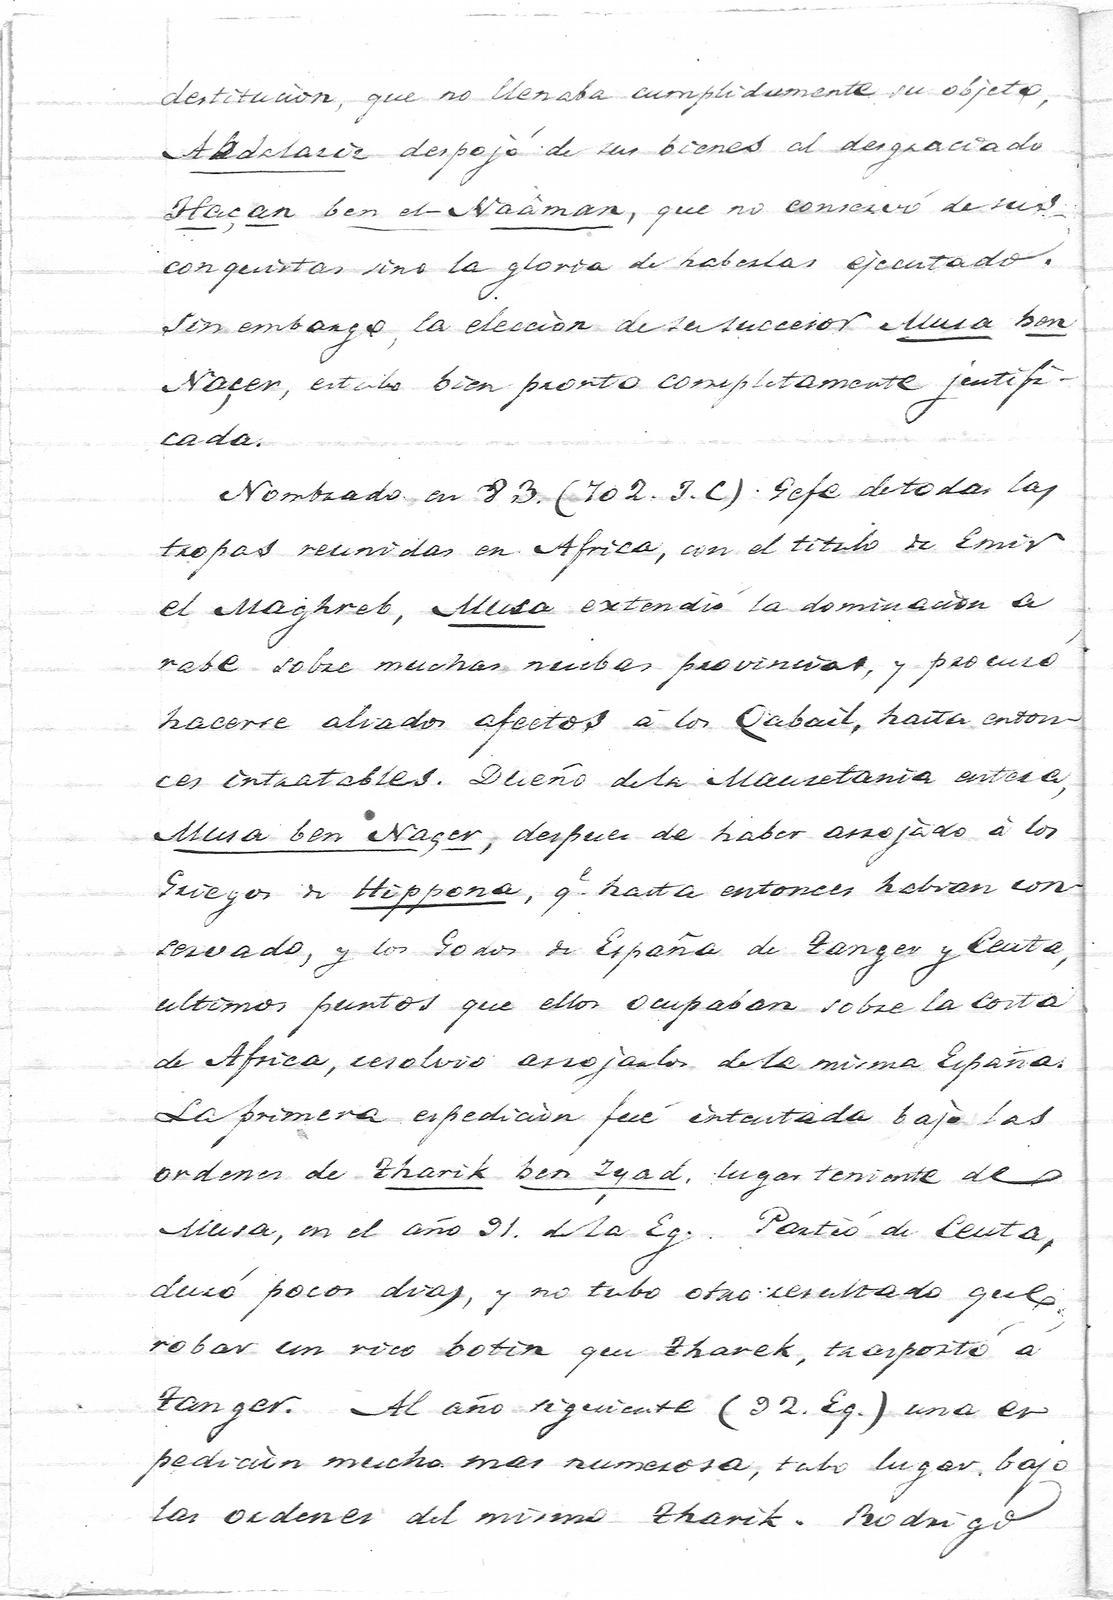 destitucion, que no llenaba cumplidamente su objeto,
Abdelaziz despojó de sus bienes al desgraciado
Haçan ben el-Naâman, que no conservó de sus
conquistas sino la gloria de haberlas ejecutado.
Sin embargo, la eleccion de su succesor Musa ben
Naçer, estubo bien pronto completamente justifi-
cada.
Nombrado en 83. (702. J. C.) Gefe de todas las
tropas reunidas en Africa, con el titulo de Emir
el Maghreb, Musa extendió la dominacion a
rabe sobre muchas nuebas provincias, y procuró
hacerse aliados afectos á los Qabail, hasta enton-
ces intratables. Dueño de la Mauretania entera,
Musa ben Naçer, despues de haber arrojado á los
Griegos de Hippona, qe. hasta entonces habian con-
servado, y los Godos de España de Tanger y Ceuta,
ultimos puntos que ellos ocupaban sobre la costa
de Africa, resolvio arrojarlos de la misma España.
La primera espedicion fué intentada bajo las
ordenes de Tharik ben Zyad, lugar teniente de
Musa, en el año 91. de la Eg. Partió de Ceuta,
duró pocos dias, y no tubo otro resultado que
robar un rico botin que Tharek, trasportó á
Tanger. Al año siguiente (92. Eg.) una es
pedicion mucho mas numerosa, tubo lugar, bajo
las ordenes del mismo Tharik. Rodrigo